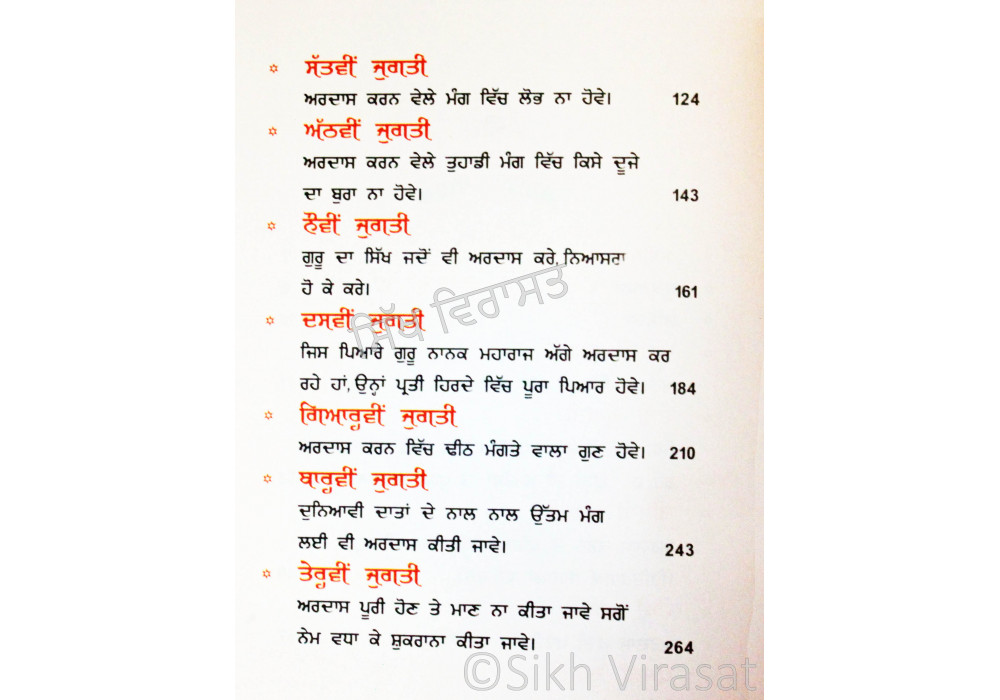 ✡ ਸੱਤਵੀਂ ਜੁਗਤੀ
ਅਰਦਾਸ ਕਰਨ ਵੇਲੇ ਮੰਗ ਵਿੱਚ ਲੋਭ ਨਾ ਹੋਵੇ। 124
✡ ਅੱਠਵੀਂ ਜੁਗਤੀ
ਅਰਦਾਸ ਕਰਨ ਵੇਲੇ ਤੁਹਾਡੀ ਮੰਗ ਵਿੱਚ ਕਿਸੇ ਦੂਜੇ
ਦਾ ਬੁਰਾ ਨਾ ਹੋਵੇ। 143
✡ ਨੌਵੀਂ ਜੁਗਤੀ
ਗੁਰੂ ਦਾ ਸਿੱਖ ਜਦੋਂ ਵੀ ਅਰਦਾਸ ਕਰੇ, ਨਿਆਸਰਾ
ਹੋ ਕੇ ਕਰੇ। 161
ਸਿੱਖ ਵਿਰਾਸਤ
✡ ਦਸਵੀਂ ਜੁਗਤੀ
ਜਿਸ ਪਿਆਰੇ ਗੁਰੂ ਨਾਨਕ ਮਹਾਰਾਜ ਅੱਗੇ ਅਰਦਾਸ ਕਰ
ਰਹੇ ਹਾਂ, ਉਨ੍ਹਾਂ ਪ੍ਰਤੀ ਹਿਰਦੇ ਵਿੱਚ ਪੂਰਾ ਪਿਆਰ ਹੋਵੇ। 184
✡ ਗਿਆਰ੍ਹਵੀਂ ਜੁਗਤੀ
ਅਰਦਾਸ ਕਰਨ ਵਿੱਚ ਢੀਠ ਮੰਗਤੇ ਵਾਲਾ ਗੁਣ ਹੋਵੇ। 210
✡ ਬਾਰ੍ਹਵੀਂ ਜੁਗਤੀ
ਦੁਨਿਆਵੀ ਦਾਤਾਂ ਦੇ ਨਾਲ ਨਾਲ ਉੱਤਮ ਮੰਗ
ਲਈ ਵੀ ਅਰਦਾਸ ਕੀਤੀ ਜਾਵੇ। 243
✡ ਤੇਰ੍ਹਵੀਂ ਜੁਗਤੀ
ਅਰਦਾਸ ਪੂਰੀ ਹੋਣ ਤੇ ਮਾਣ ਨਾ ਕੀਤਾ ਜਾਵੇ ਸਗੋਂ
ਨੇਮ ਵਧਾ ਕੇ ਸ਼ੁਕਰਾਨਾ ਕੀਤਾ ਜਾਵੇ। 264
©Sikh Virasat